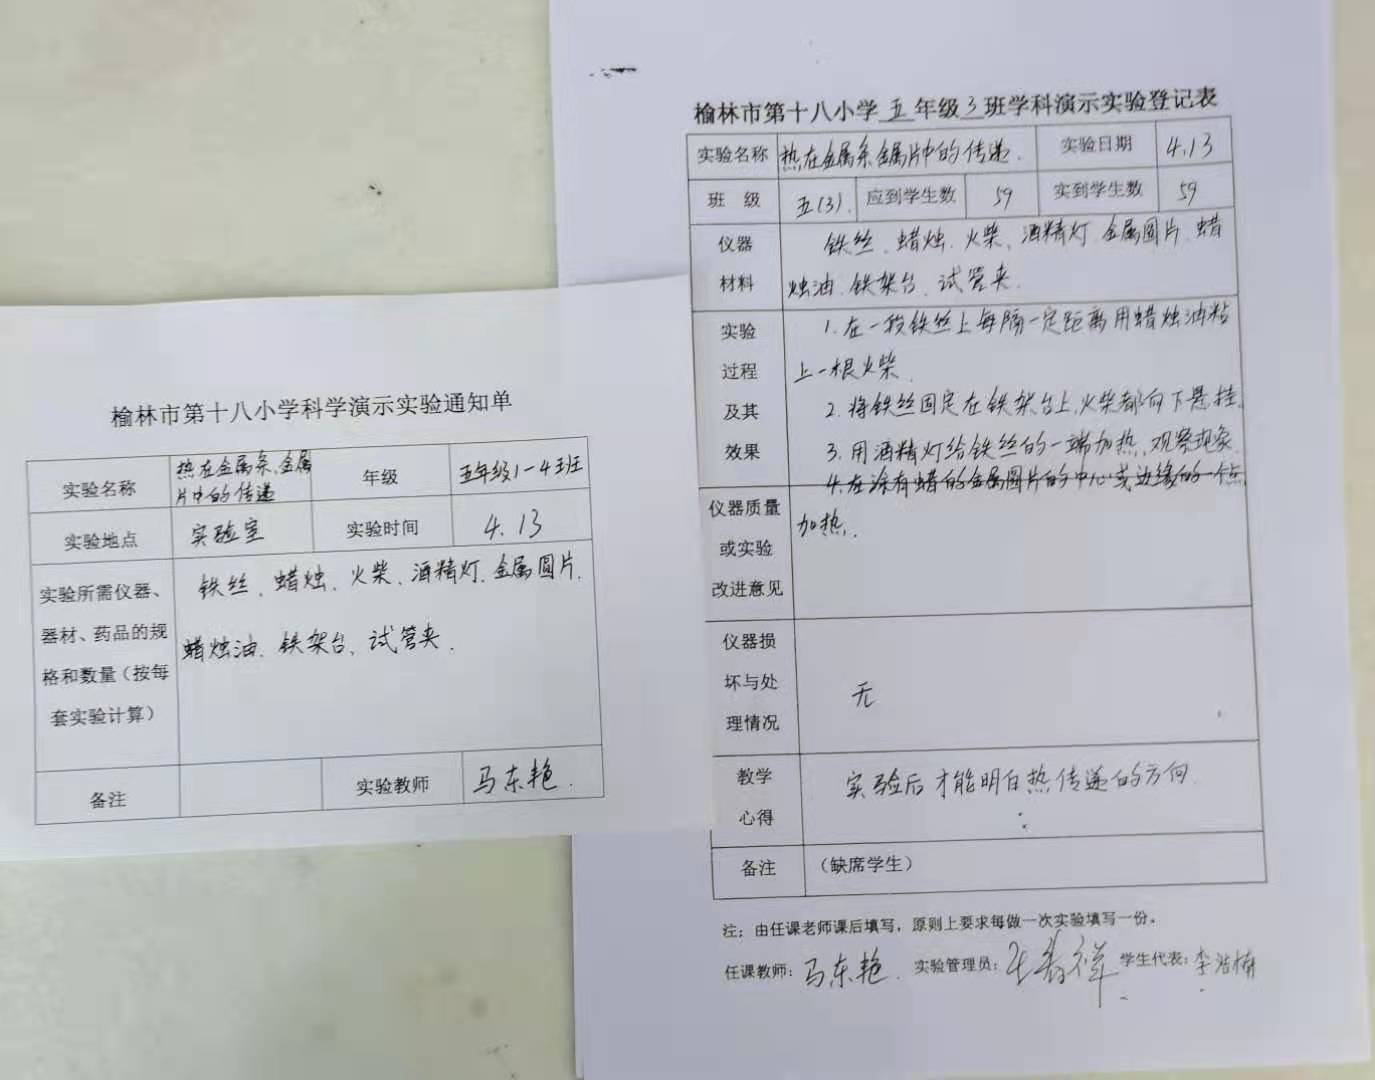 榆林市第十八小学科学演示实验通知单
实验名称 热在金属条、金属片中的传递 年级 五年级1-4班
实验地点 实验室 实验时间 4.13
实验所需仪器、器材、药品的规格和数量（按每套实验计算）
铁丝、蜡烛、火柴、酒精灯、金属圆片、
蜡烛油、铁架台、试管夹.
备注 实验教师 马东艳.
榆林市第十八小学五年级3班学科演示实验登记表
实验名称 热在金属条金属片中的传递. 实验日期 4.13
班 级 五(3). 应到学生数 59 实到学生数 59
仪器材料
铁丝、蜡烛、火柴、酒精灯、金属圆片、蜡
烛油、铁架台、试管夹.
实验过程及其效果
1.在一段铁丝上每隔一定距离用蜡烛油粘
上一根火柴.
2.将铁丝固定在铁架台上,火柴都向下悬挂.
3.用酒精灯给铁丝的一端加热,观察现象.
4.在涂有蜡的金属圆片的中心或边缘的一个点
加热.
仪器质量或实验改进意见
仪器损坏与处理情况
无
教学心得
实验后才能明白热传递的方向.
备注 （缺席学生）
注：由任课老师课后填写，原则上要求每做一次实验填写一份。
任课教师：马东艳. 实验管理员： 学生代表：